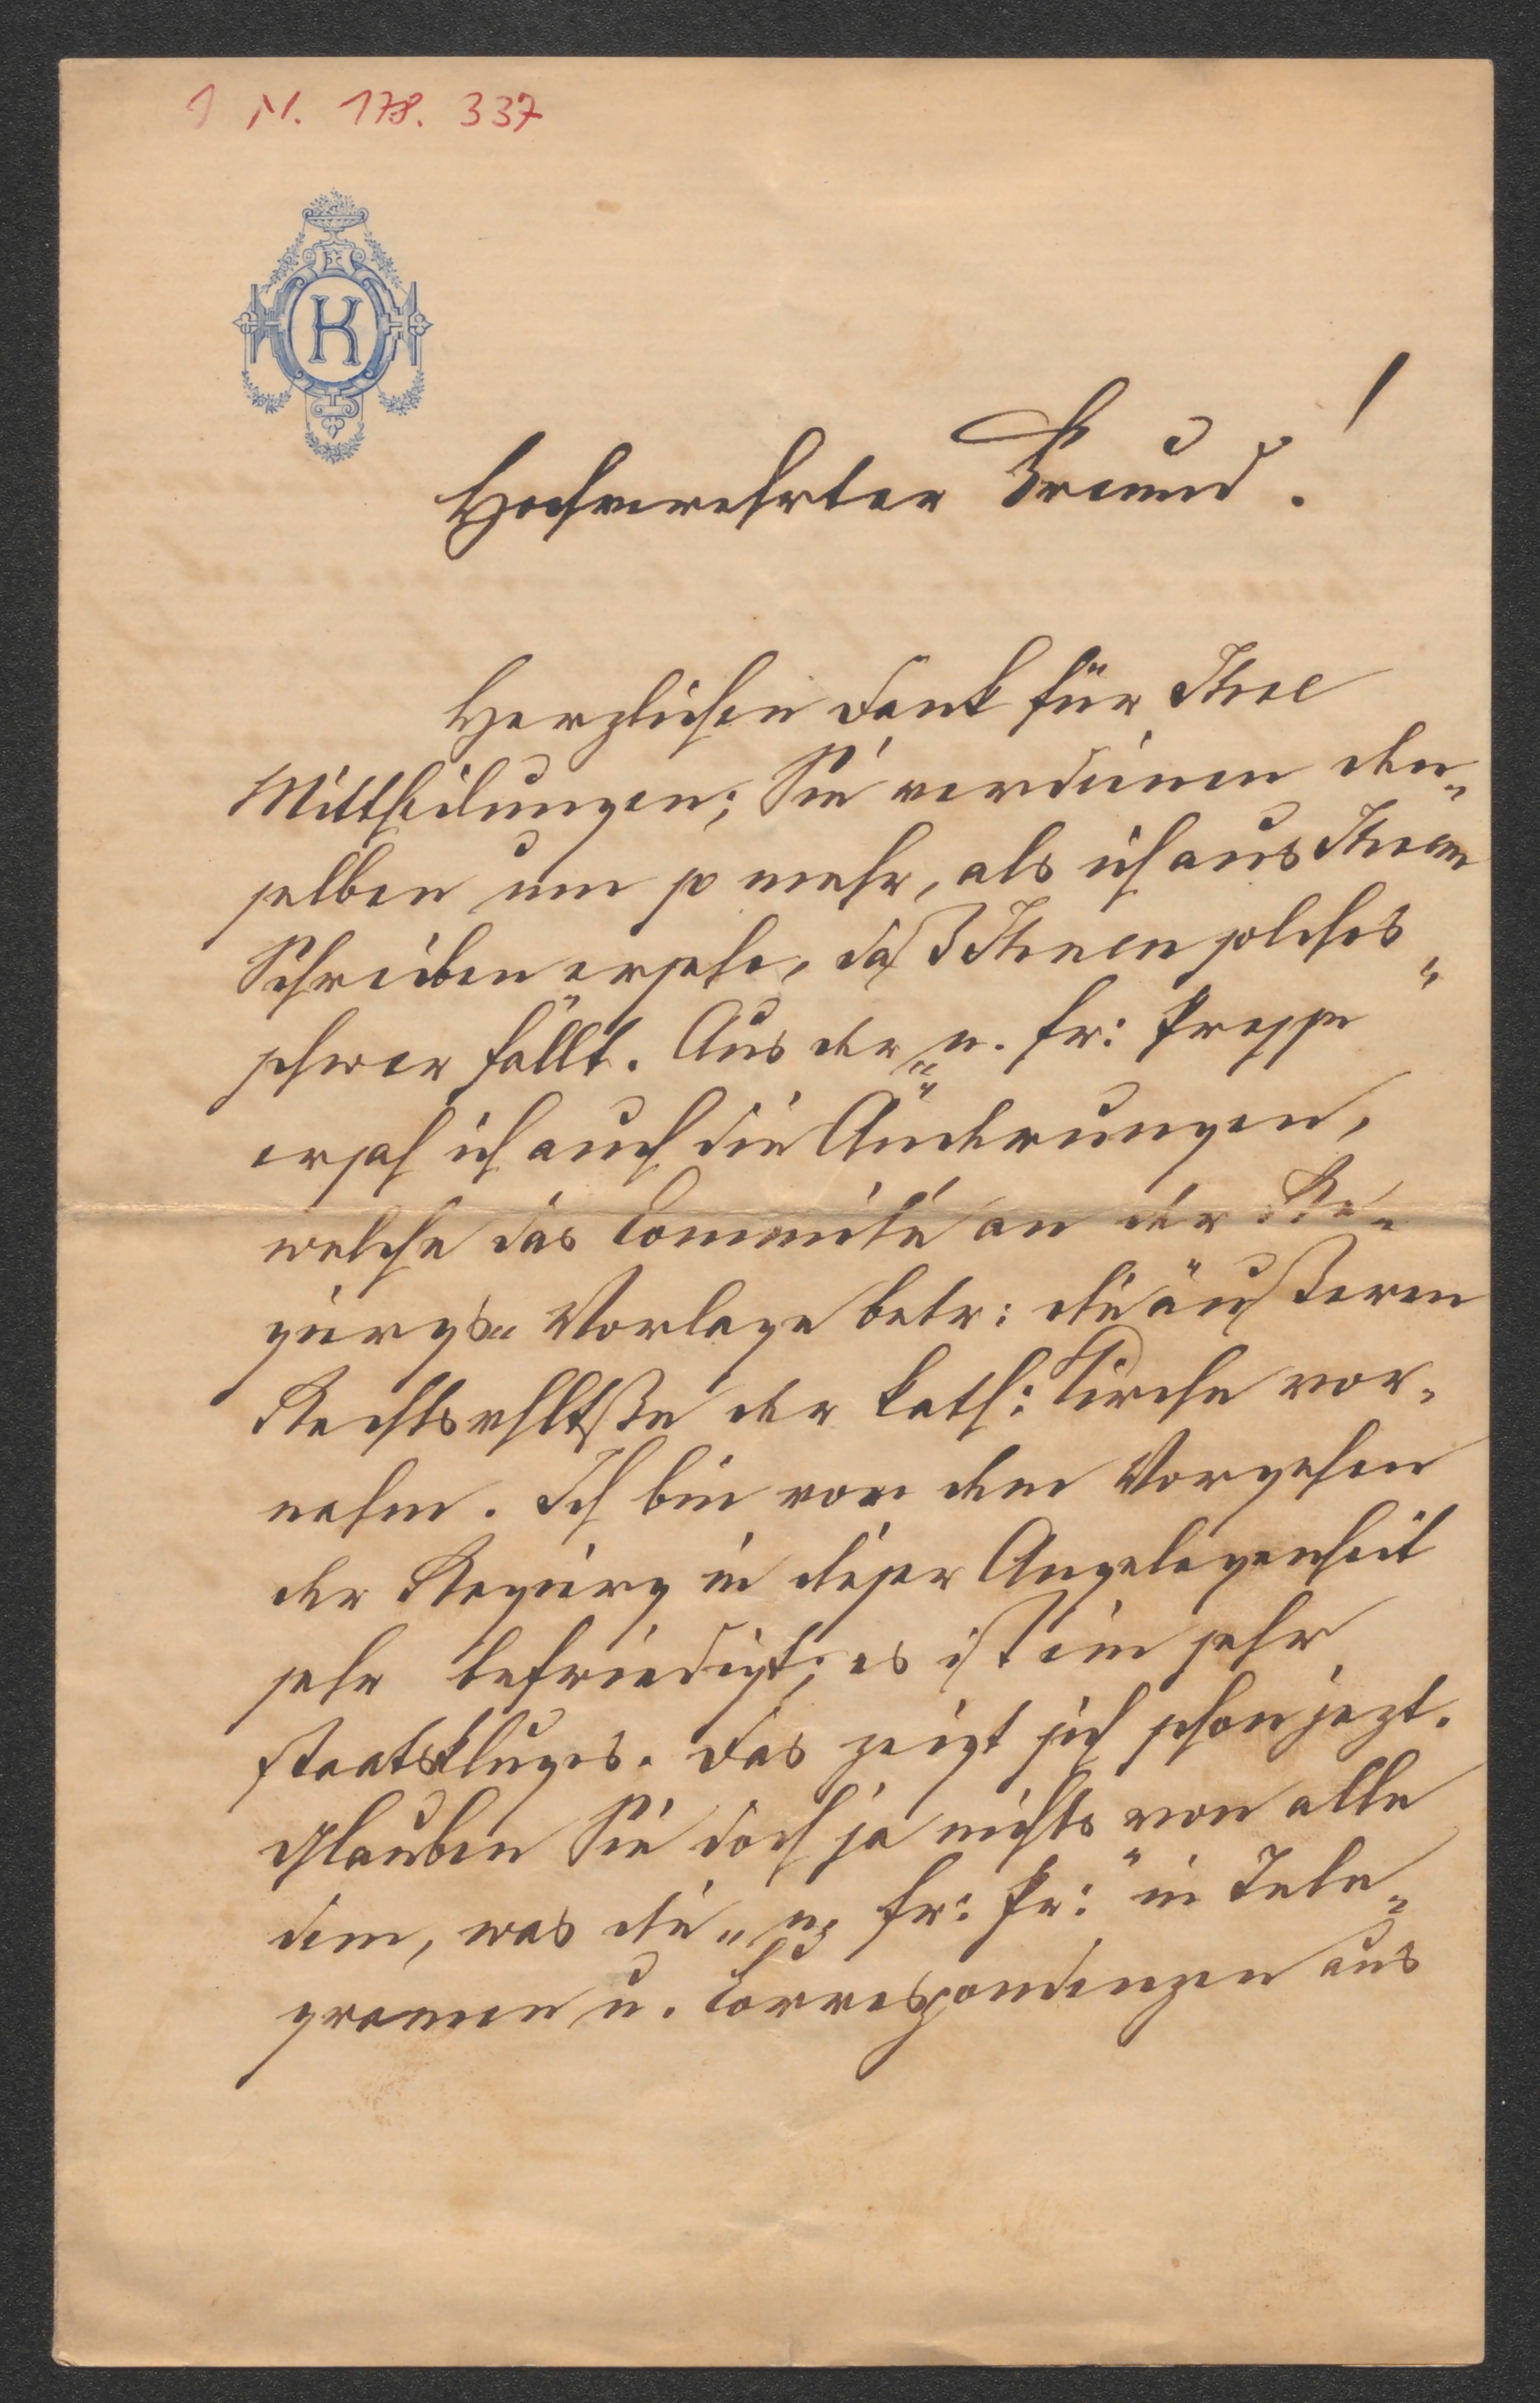 I N. 178. 337
K
Hochverehrter Freund!
Herzlichen Dank für Ihre
Mittheilungen; Sie verdienen den-
selben um so mehr, als ich aus Ihrem
Schreiben ersehe, daß Ihnen solches
schwer fällt. Aus der „n. fr: Presse“
ersah ich auch die Änderungen,
welche das Committé an der Re-
gierungs-Vorlage betr: die äußeren
Rechtsvhltße der kath: Kirche vor-
nahm. Ich bin von dem Vorgehen
der Regierung in dieser Angelegenheit
sehr befriedigt; es ist ein sehr
staatskluges. Das zeigt sich schon jezt.
Glauben Sie doch ja nichts von alle
dem, was die „n. fr: Pr:“ in Tele-
gramen u. Correspondenzen aus